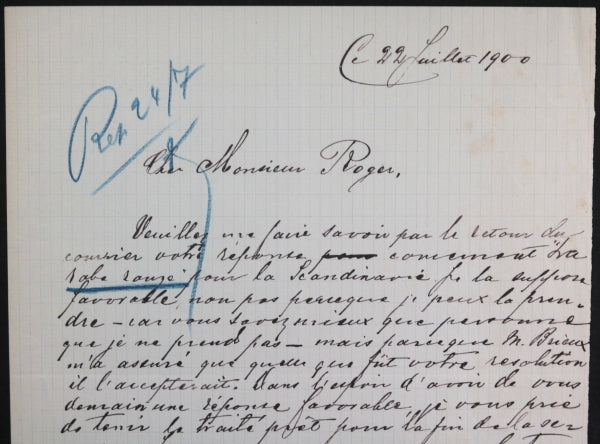 Ce 22 Juillet 1900
Rep. 24/7
Cher Monsieur Roger,
Veuillez me faire savoir par le retour du
courrier votre réponse concernant "la
robe rouge" pour la Scandinavie Je la suppose
favorable, non pas parceque je peux la pren-
dre – car vous savez mieux que personne
que je ne prend pas – mais parceque M. Brieux
m'a assuré que quelle que fût votre resolution
il l'accepterait. Dans l'espoir d'avoir de vous
demain une réponse favorable je vous prie
de tenir le traité prêt pour la fin de la se